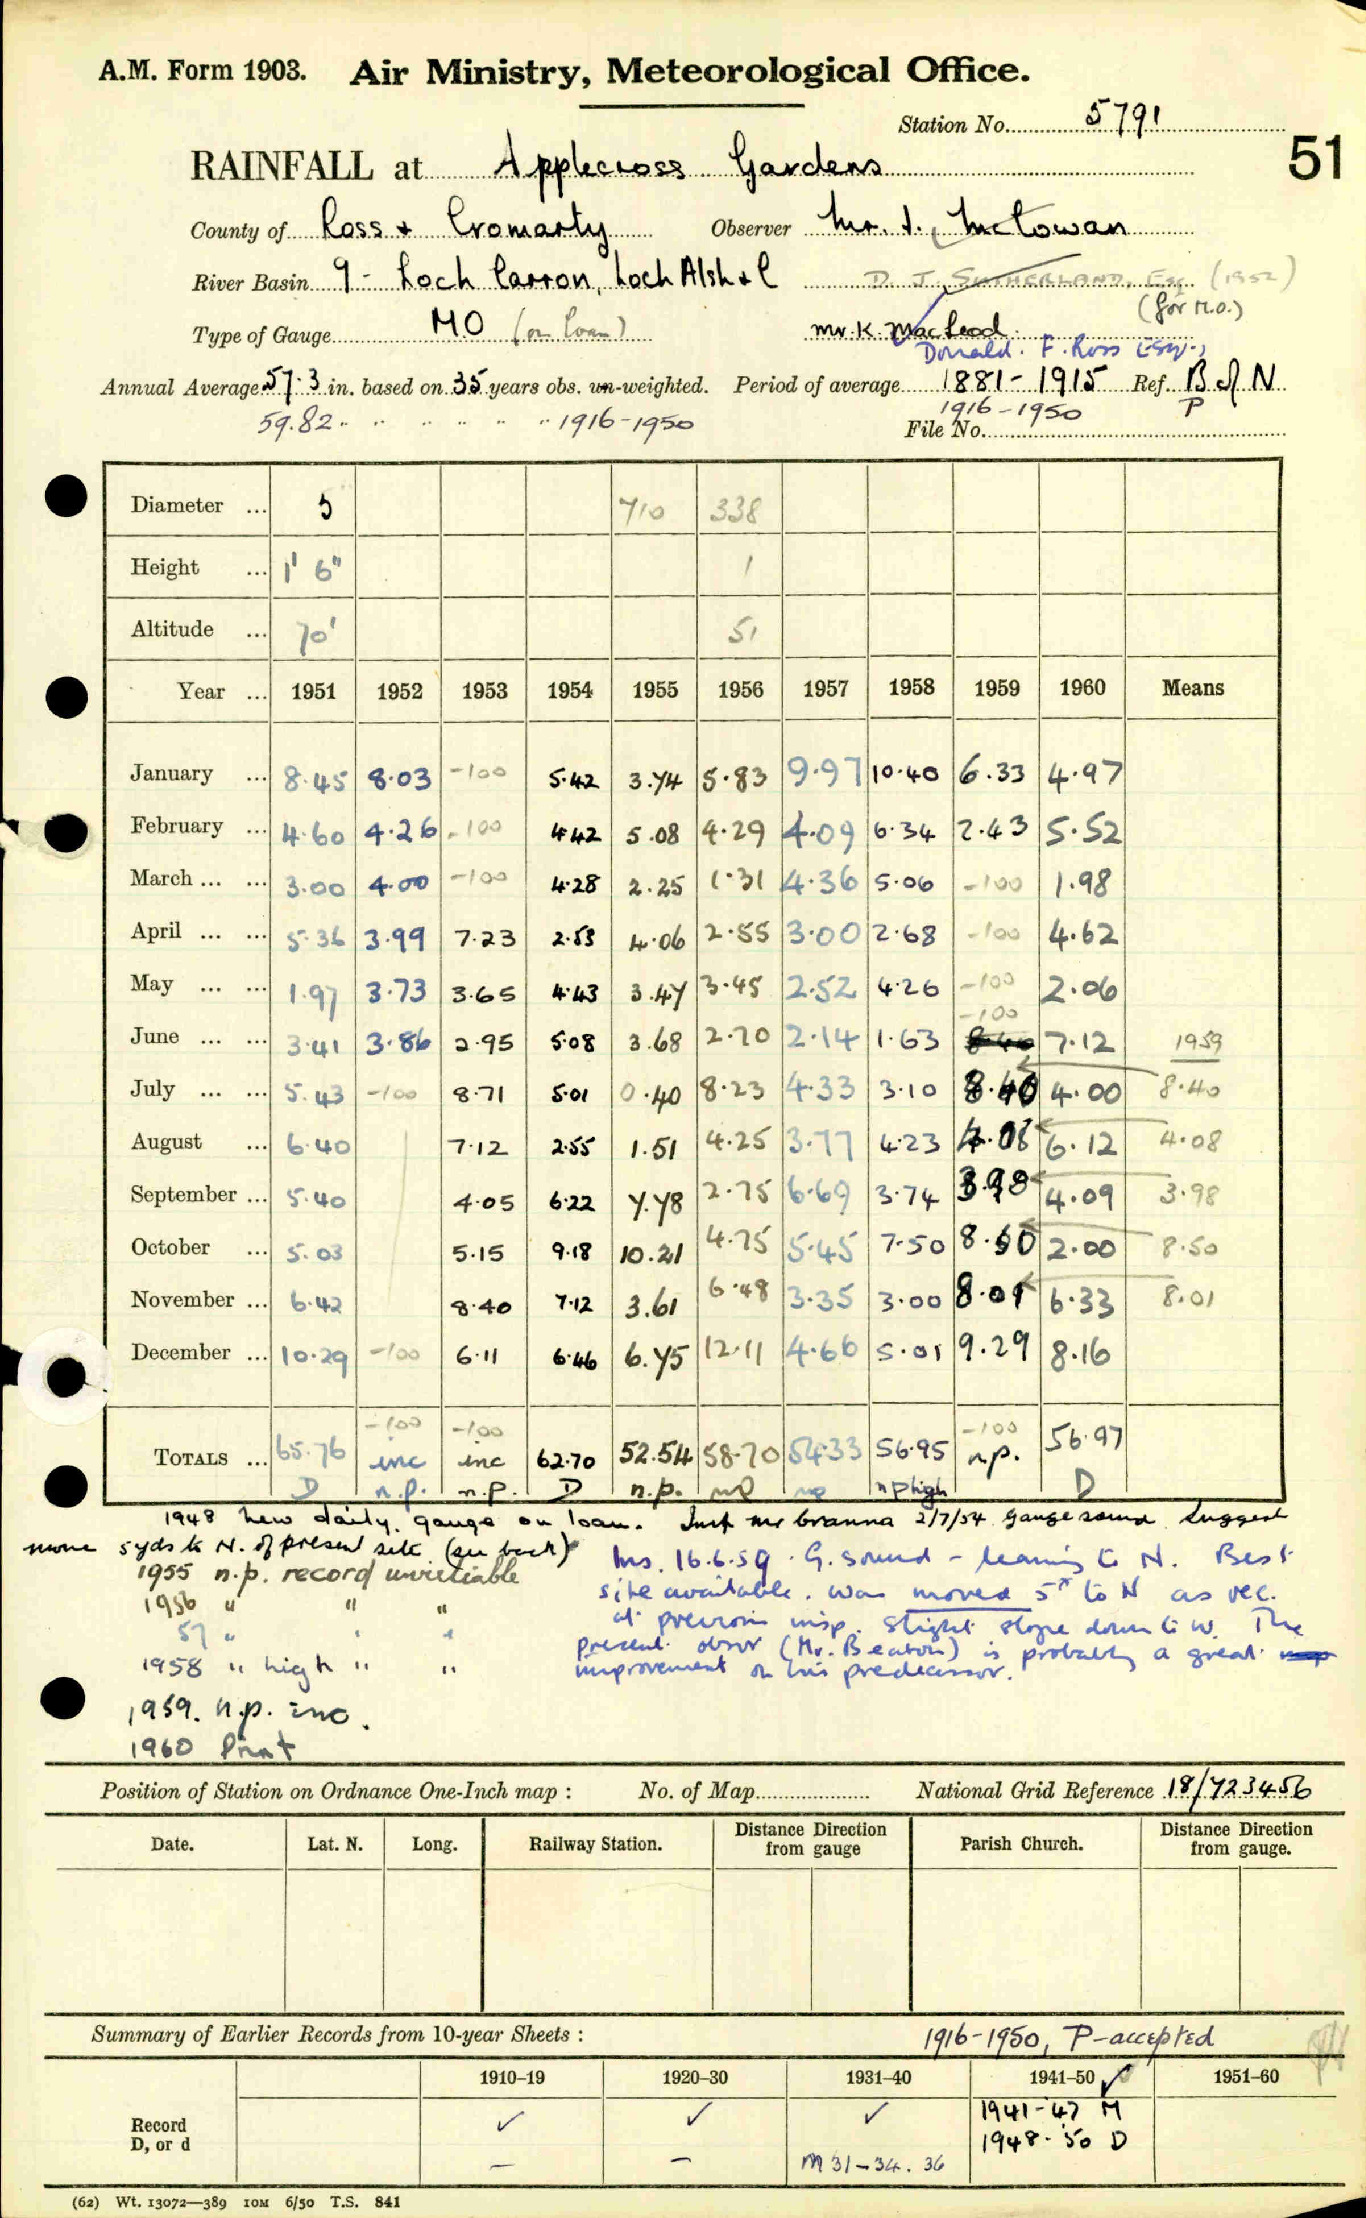 A.M. Form 1903. Air Ministry, Meteorological Office.
Station No. 5791
51
RAINFALL at Applecross Gardens
County of Ross + Cromarty Observer Mr. J. McCowan
River Basin 9 - Loch Carron, Loch Alsh & C D. J. SUTHERLAND, Esq (1952)
(for M.O.)
Type of Gauge MO (on loan) Mr. K. MacLeod
Donald. F. Ross Esq.,
Annual Average 57.3 in. based on 35 years obs. un-weighted. Period of average 1881-1915 Ref. B of N
59.82 " " " " " " 1916-1950 1916-1950 P
File No.
Diameter ... 5 710 338
Height ... 1' 6" 1
Altitude ... 70' 51
Year ... 1951 1952 1953 1954 1955 1956 1957 1958 1959 1960 Means
January ... 8.45 8.03 -100 5.42 3.74 5.83 9.97 10.40 6.33 4.97
February ... 4.60 4.26 -100 4.42 5.08 4.29 4.09 6.34 2.43 5.52
March ... ... 3.00 4.00 -100 4.28 2.25 1.31 4.36 5.06 -100 1.98
April ... ... 5.36 3.99 7.23 2.53 4.06 2.55 3.00 2.68 -100 4.62
May ... ... 1.97 3.73 3.65 4.43 3.47 3.45 2.52 4.26 -100 2.06
-100
June ... ... 3.41 3.86 2.95 5.08 3.68 2.70 2.14 1.63 8.40 7.12 1959
July ... ... 5.43 -100 8.71 5.01 0.40 8.23 4.33 3.10 8.40 4.00 8.40
August ... 6.40 7.12 2.55 1.51 4.25 3.77 4.23 4.08 6.12 4.08
September ... 5.40 4.05 6.22 7.78 2.75 6.69 3.74 3.98 4.09 3.98
October ... 5.03 5.15 9.18 10.21 4.75 5.45 7.50 8.50 2.00 8.50
November ... 6.42 8.40 7.12 3.61 6.48 3.35 3.00 8.01 6.33 8.01
December ... 10.29 -100 6.11 6.46 6.75 12.11 4.66 5.01 9.29 8.16
-100 -100 -100
TOTALS ... 65.76 inc inc 62.70 52.54 58.70 54.33 56.95 n.p. 56.97
D n.p. n.p. D n.p. np np np high D
1948 New daily gauge on loan. Insp Mr Cranna 2/7/54 Gauge sound Suggest
move 5yds to N. of present site (see back)
1955 n.p. record unreliable
1956 " " "
57 " " "
1958 " high " "
1959. n.p. inc.
1960 Print
Ins. 16.6.59. G. sound - leaning to N. Best
site available. was moved 5x to N as rec.
at previous insp. Slight slope down to W. The
present obsvr (Mr. Beaton) is probably a great
improvement on his predecessor.
Position of Station on Ordnance One-Inch map : No. of Map National Grid Reference 18/723456
Date. Lat. N. Long. Railway Station. Distance Direction from gauge Parish Church. Distance Direction from gauge.
Summary of Earlier Records from 10-year Sheets : 1916-1950, P-accepted
1910-19 1920-30 1931-40 1941-50 ✓ 1951-60
Record D, or d ✓ ✓ ✓ 1941-47 M
1948-50 D
– – M 31-34. 36
(62) Wt. 13072—389 10M 6/50 T.S. 841